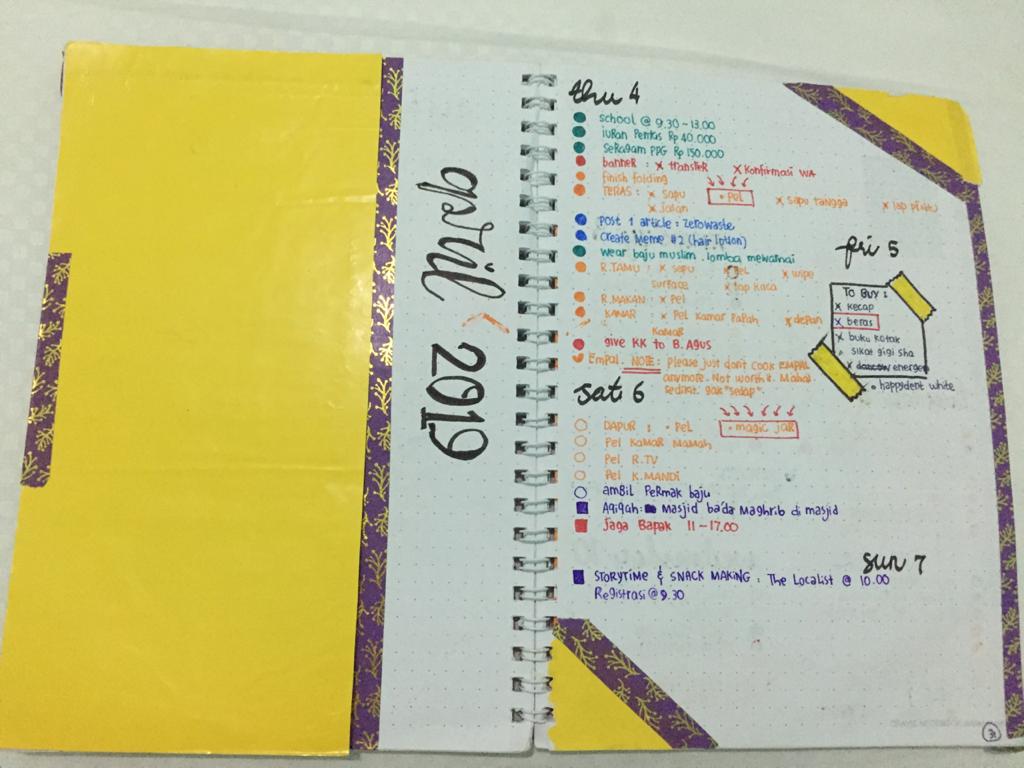 april 2019
thu 4
school @ 9.30 - 13.00
iuran Pentas Rp 40.000
Seragam PPG Rp 150.000
banner : x transfer x konfirmasi WA
finish folding
TERAS : x sapu • pel x sapu tangga x lap pintu
x jalan
post 1 article : zerowaste
create Meme #2 (hair lotion)
wear baju muslim . lomba mewarnai
fri 5
R.TAMU : x sapu x pel x wipe
surface x lap kaca
R.MAKAN : x pel
KAMAR : x pel kamar Papah x depan
kamar
give KK to B. Agus
Empal. NOTE: Please just don't cook EMPAL
anymore. Not worth it. Mahal
sedikit gak "sedap".
TO BUY :
x kecap
x beras
x buku kotak
sikat gigi sha
x energen
• happydent white
sat 6
DAPUR : • Pel • magic jar
Pel Kamar Mamah
Pel R.TV
Pel K.MANDI
ambil Permak baju
Aqiqah: Masjid ba'da Maghrib di masjid
Jaga Bapak 11 - 17.00
sun 7
STORYTIME & SNACK MAKING : The Localist @ 10.00
Registrasi @ 9.30
31